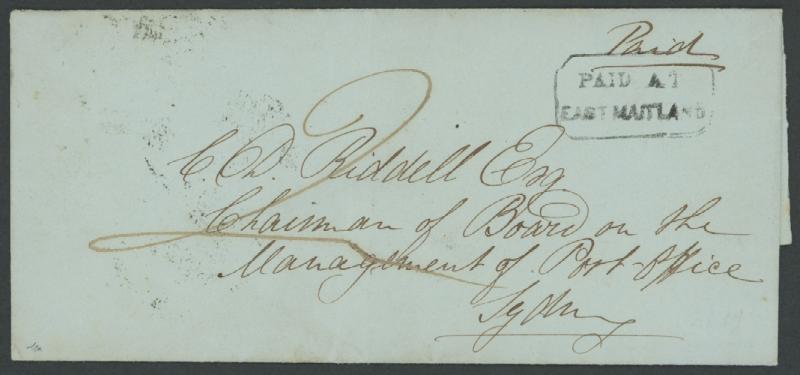 Paid
PAID AT
EAST MAITLAND
2
C. D. Riddell Esq
Chairman of Board on the
Management of Post-Office
Sydney